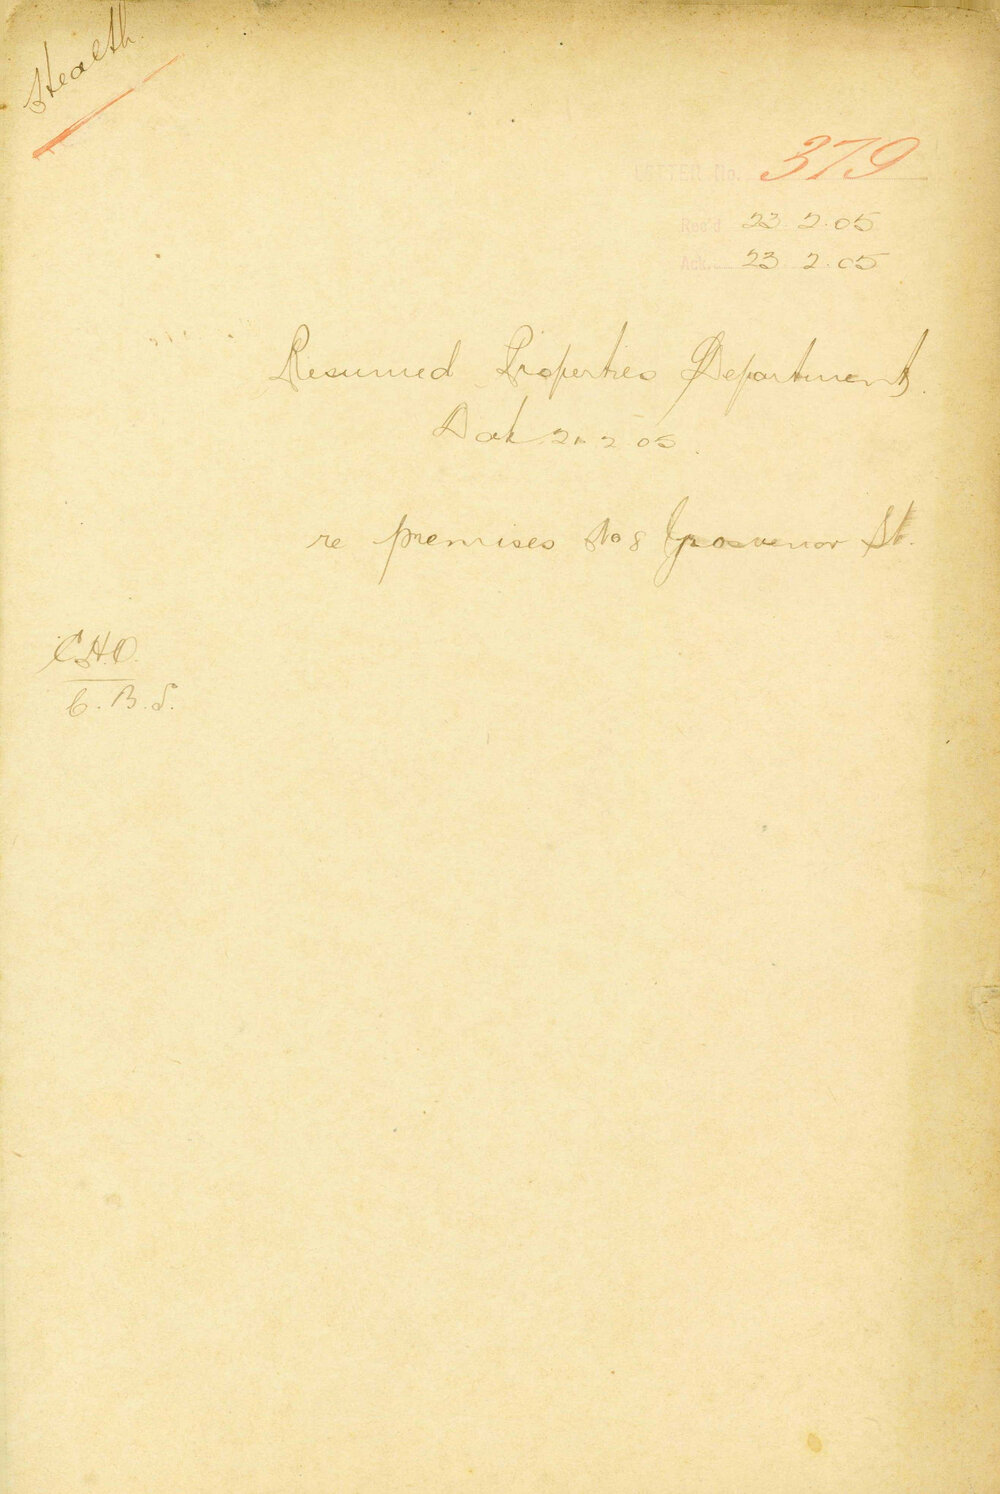 Health.
LETTER No. 379
Rec'd 23. 2. 05
Ack. 23 2. 05
Resumed Properties Department.
Date 21. 2 05.
re premises No 8 Grosvenor St.
C.H.O.
C.B.S.